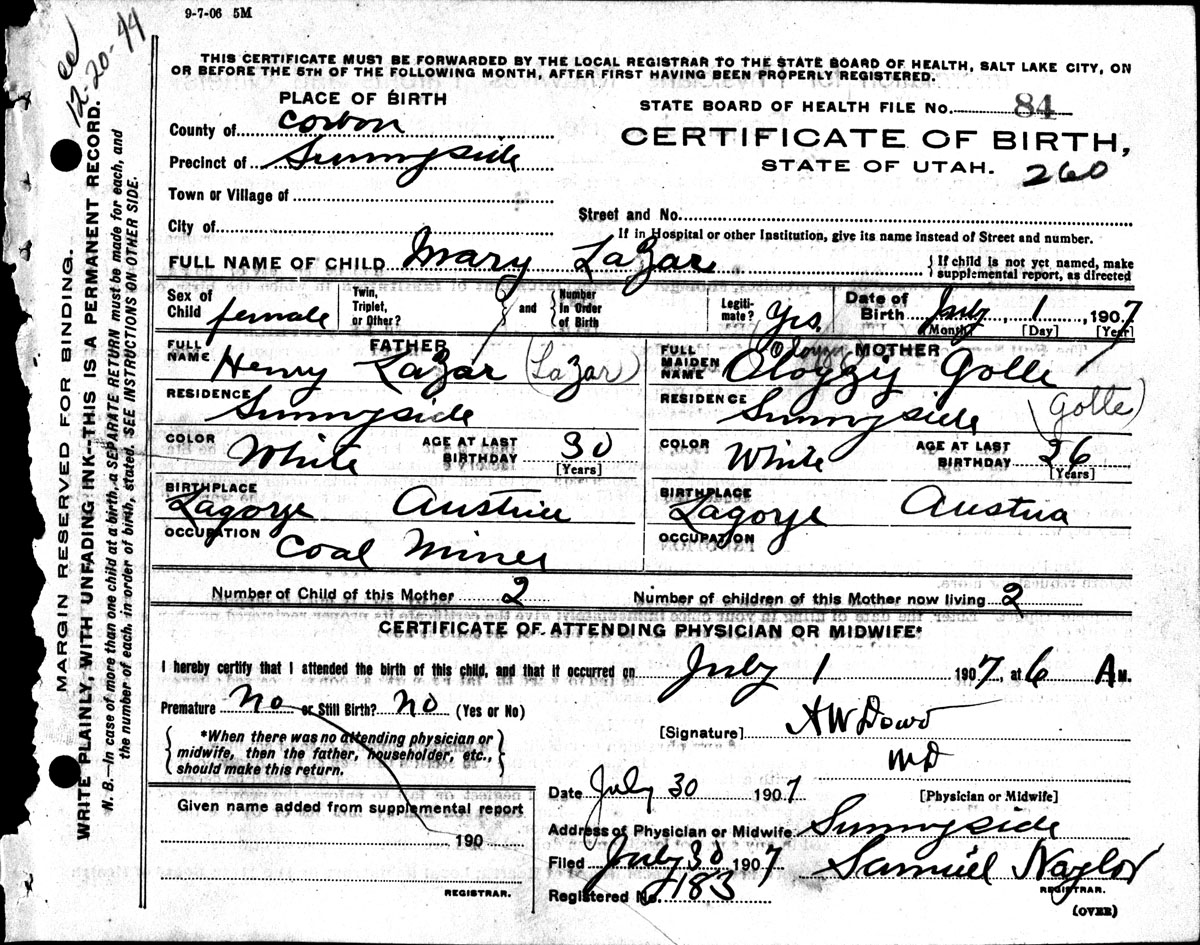 9-7-06 5M
12-20-44
THIS CERTIFICATE MUST BE FORWARDED BY THE LOCAL REGISTRAR TO THE STATE BOARD OF HEALTH, SALT LAKE CITY, ON
OR BEFORE THE 5TH OF THE FOLLOWING MONTH, AFTER FIRST HAVING BEEN PROPERLY REGISTERED.
MARGIN RESERVED FOR BINDING.
WRITE PLAINLY, WITH UNFADING INK--THIS IS A PERMANENT RECORD.
N. B.—In case of more than one child at a birth, a SEPARATE RETURN must be made for each, and
the number of each, in order of birth, stated. SEE INSTRUCTIONS ON OTHER SIDE.
PLACE OF BIRTH
County of Corbon
Precinct of Sunnyside
Town or Village of
City of
STATE BOARD OF HEALTH FILE No. 84
CERTIFICATE OF BIRTH,
STATE OF UTAH. 260
Street and No.
If in Hospital or other Institution, give its name instead of Street and number.
FULL NAME OF CHILD Mary LaZar
{ If child is not yet named, make
supplemental report, as directed
Sex of Child female
Twin, Triplet, or Other?
and
Number In Order of Birth
Legitimate? Yes.
Date of Birth July 1, 1907
[Month] [Day] [Year]
FATHER
FULL NAME Henry LaZar (LaZar)
RESIDENCE Sunnyside
COLOR White AGE AT LAST BIRTHDAY 30 [Years]
BIRTHPLACE Lagorje Austria
OCCUPATION Coal Miner
MOTHER
FULL MAIDEN NAME Golle (Golle)
RESIDENCE Sunnyside
COLOR White AGE AT LAST BIRTHDAY 26 [Years]
BIRTHPLACE Lagorje Austria
OCCUPATION
Number of Child of this Mother 2 Number of children of this Mother now living 2
CERTIFICATE OF ATTENDING PHYSICIAN OR MIDWIFE*
I hereby certify that I attended the birth of this child, and that it occurred on July 1 1907, at 6 A M.
Premature No or Still Birth? No (Yes or No)
{ *When there was no attending physician or
midwife, then the father, householder, etc.,
should make this return. }
[Signature] A W Dowd
MD
[Physician or Midwife]
Date July 30 1907
Given name added from supplemental report
190
REGISTRAR.
Address of Physician or Midwife Sunnyside
Filed July 30 1907 Samuel Naylor
REGISTRAR.
Registered No. 183
(OVER)